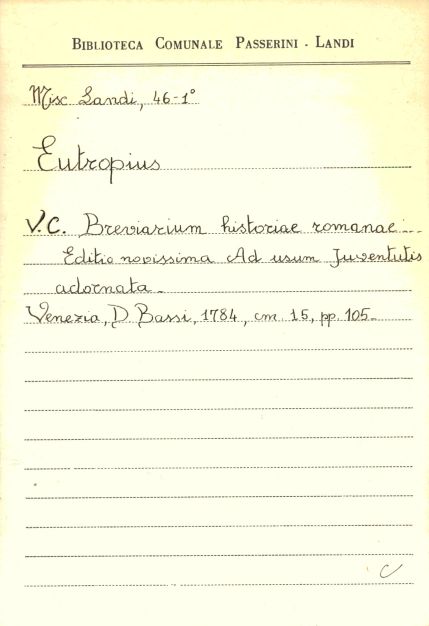 BIBLIOTECA COMUNALE PASSERINI - LANDI
Misc Landi, 46-1°
Eutropius
V.C. Breviarium historiae romanae...
Editio novissima Ad usum Juventutis
adornata.
Venezia, D. Bassi, 1784, cm. 15, pp. 105.
C